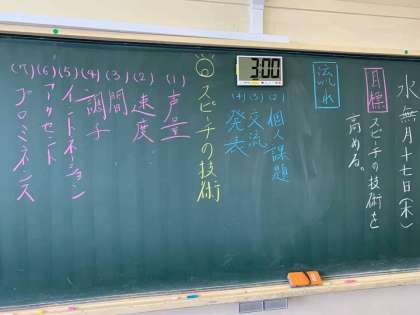 水無月十七日(木)
目標
スピーチの技術を
高める。
流れ
(2)個人課題
(3)交流
(4)発表
3:00
スピーチの技術
(1)声量
(2)速度
(3)間
(4)調子
(5)イントネーション
(6)アクセント
(7)プロミネンス